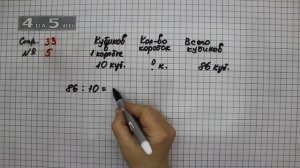 4АU5.RU
Стр. 33 Кубиков Кол-во Всего
№ 5 1 коробке коробок кубиков
10 куб. ? к. 86 куб.
86 : 10 =